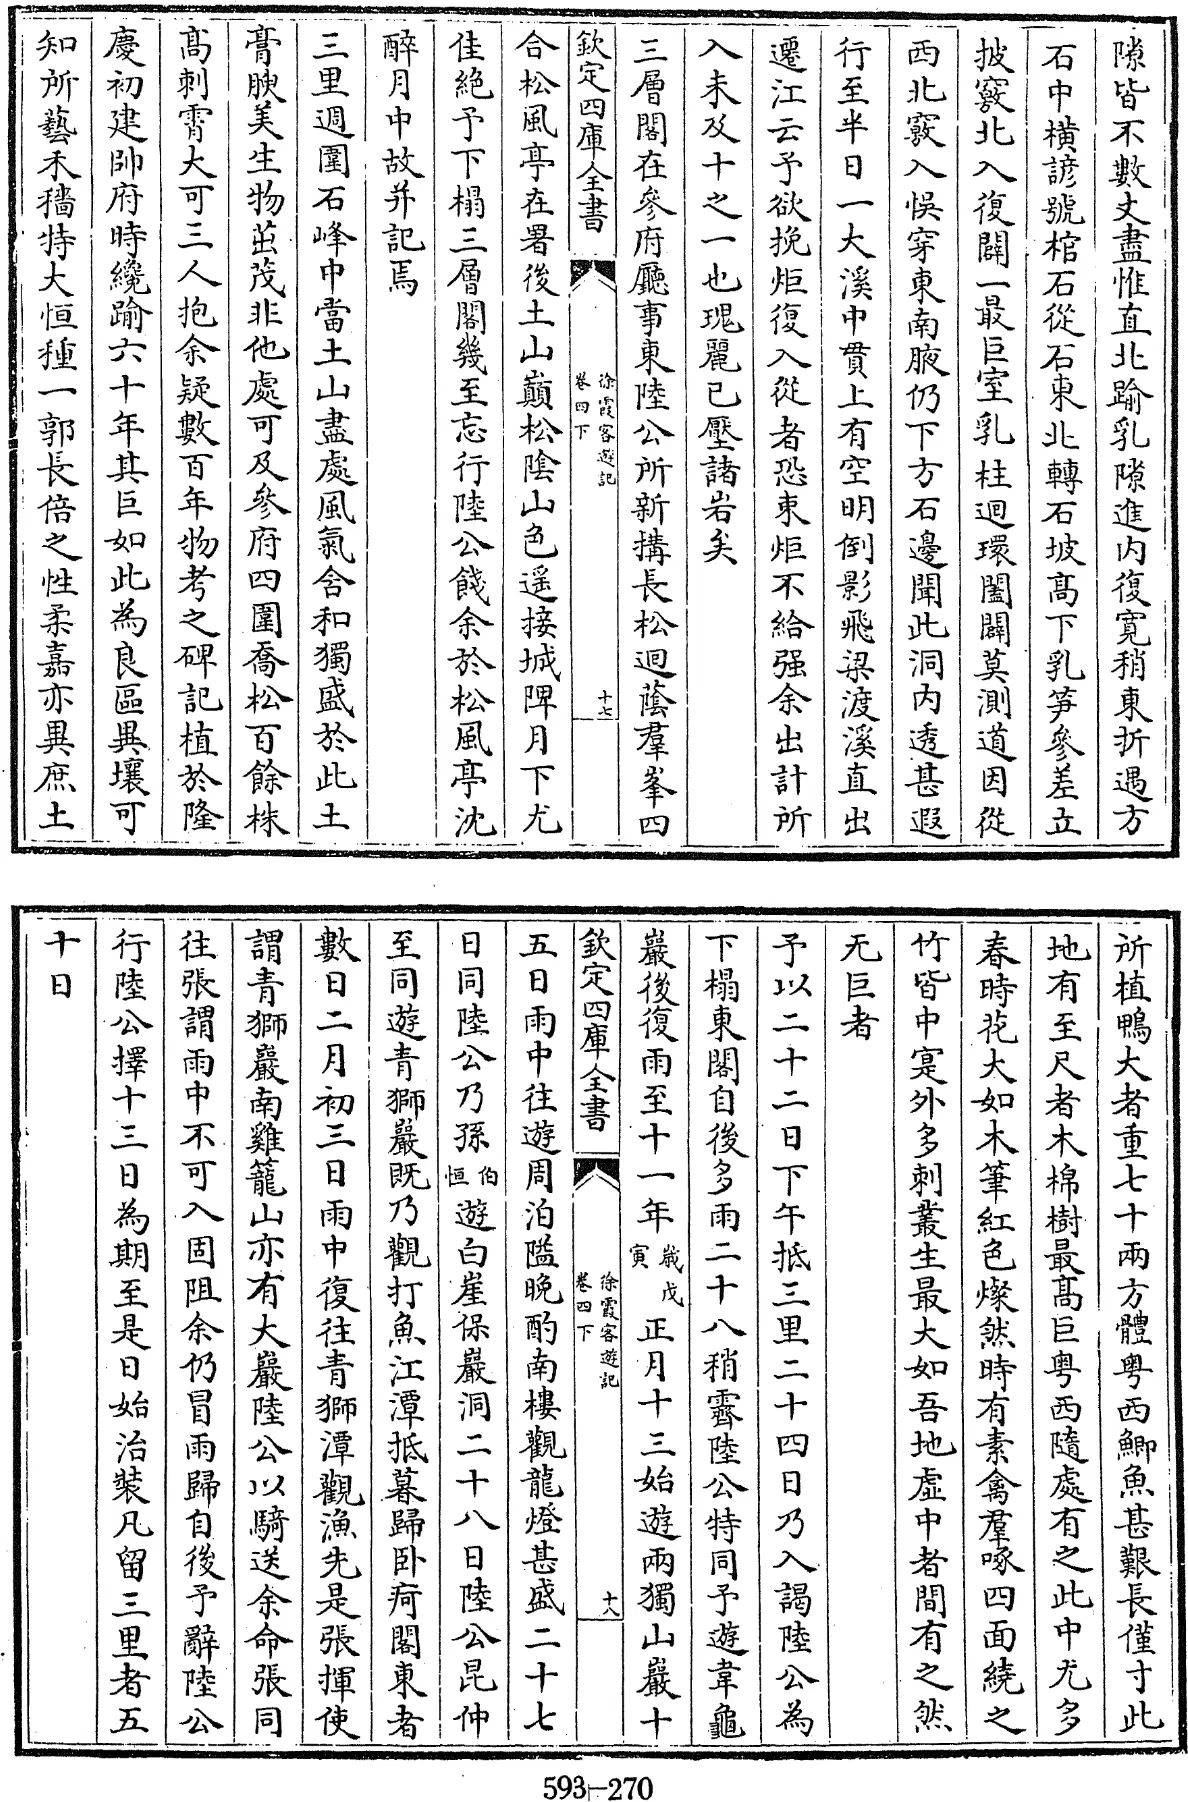 隙皆不數丈盡惟直北踰乳隙進内復寛稍東折遇方
石中橫諺號棺石從石東北轉石坡髙下乳笋參差立
披竅北入復闢一最巨室乳柱迴環闔闢莫測道因從
西北竅入悞穿東南腋仍下方石邊聞此洞内透甚遐
行至半日一大溪中貫上有空明倒影飛梁渡溪直出
遷江云予欲挽炬復入從者恐東炬不給强余出計所
入未及十之一也瑰麗已壓諸岩矣
三層閣在參府廳事東陸公所新搆長松迴蔭羣峯四
欽定四庫全書
徐霞客遊記
卷四下
十七
合松風亭在署後土山巔松陰山色遥接城睥月下尤
佳絶予下榻三層閣幾至忘行陸公餞余於松風亭沈
醉月中故并記焉
三里週圍石峰中當土山盡處風氣含和獨盛於此土
膏腴美生物茁茂非他處可及參府四圍喬松百餘株
髙刺霄大可三人抱余疑數百年物考之碑記植於隆
慶初建帥府時纔踰六十年其巨如此為良區異壤可
知所藝禾穡特大恒種一郭長倍之性柔嘉亦異庶土
所植鴨大者重七十兩方體粤西鯽魚甚艱長僅寸此
地有至尺者木棉樹最髙巨粤西隨處有之此中尤多
春時花大如木筆紅色燦然時有素禽羣啄四面繞之
竹皆中寔外多刺叢生最大如吾地虛中者間有之然
无巨者
予以二十二日下午抵三里二十四日乃入謁陸公為
下榻東閣自後多雨二十八稍霽陸公特同予遊韋龜
巖後復雨至十一年歲戊寅正月十三始遊兩獨山巖十
欽定四庫全書
徐霞客遊記
卷四下
十八
五日雨中往遊周泊隘晚酌南樓觀龍燈甚盛二十七
日同陸公乃孫伯恒遊白崖保巖洞二十八日陸公昆仲
至同遊青獅巖既乃觀打魚江潭抵暮歸卧疴閣東者
數日二月初三日雨中復往青獅潭觀漁先是張揮使
謂青獅巖南雞籠山亦有大巖陸公以騎送余命張同
往張謂雨中不可入固阻余仍冒雨歸自後予辭陸公
行陸公擇十三日為期至是日始治裝凡留三里者五
十日
593-270